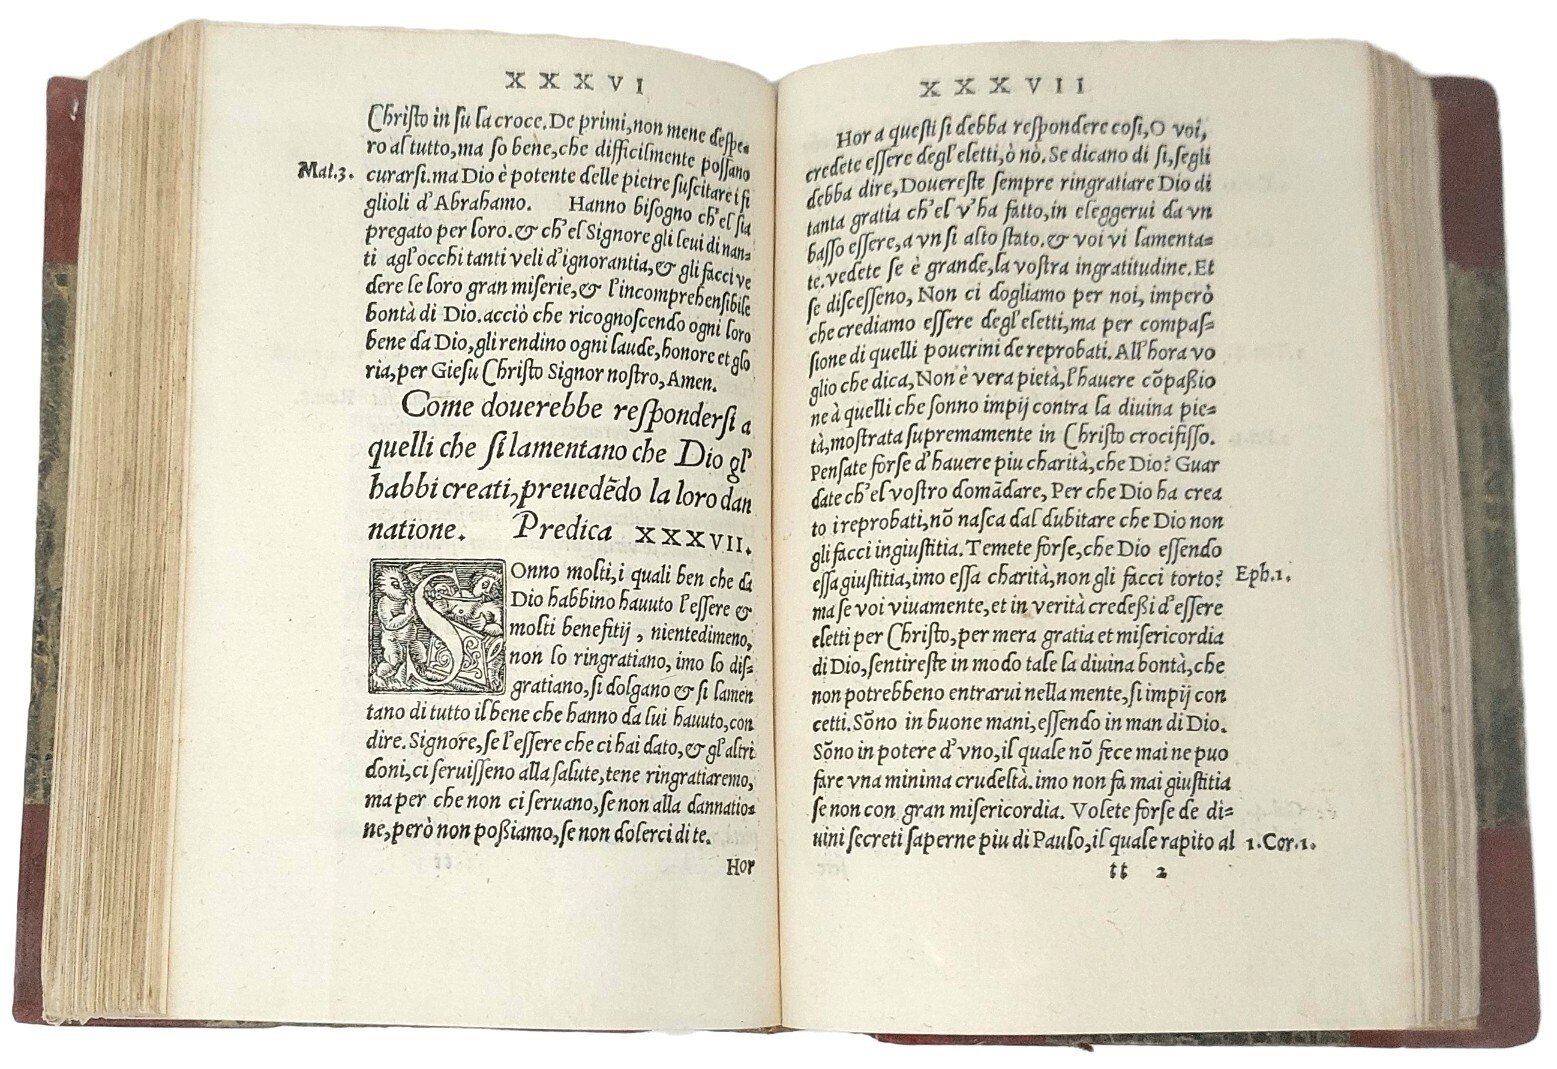 XXXVI
Christo in su la croce. De primi, non mene despe-
ro al tutto, ma so bene, che difficilmente possano
Mat.3.
curarsi. ma Dio è potente delle pietre suscitare i fi
glioli d'Abrahamo. Hanno bisogno ch'el sia
pregato per loro. & ch'el Signore gli leui di nan-
ti agl'occhi tanti veli d'ignorantia, & gli facci ve
dere le loro gran miserie, & l'incomprehensibile
bontà di Dio. acciò che ricognoscendo ogni loro
bene da Dio, gli rendino ogni laude, honore et glo
ria, per Giesu Christo Signor nostro, Amen.
Come douerebbe respondersi a
quelli che si lamentano che Dio gl'
habbi creati, preuedẽdo la loro dan
natione. Predica XXXVII.
SOnno molti, i quali ben che da
Dio habbino hauuto l'essere &
molti benefitij, nientedimeno,
non lo ringratiano, imo lo dis-
gratiano, si dolgano & si lamen
tano di tutto il bene che hanno da lui hauuto, con
dire. Signore, se l'essere che ci hai dato, & gl'altri
doni, ci seruisseno alla salute, tene ringratiaremo,
ma per che non ci seruano, se non alla dannatio-
ne, però non poßiamo, se non dolerci di te.
Hor
XXXVII
Hor a questi si debba respondere cosi, O voi,
credete essere degl'eletti, ò nò. Se dicano di si, segli
debba dire, Douereste sempre ringratiare Dio di
tanta gratia ch'el v'ha fatto, in eleggerui da vn
basso essere, a vn si alto stato. & voi vi lamenta-
te. vedete se è grande, la vostra ingratitudine. Et
se discesseno, Non ci dogliamo per noi, imperò
che crediamo essere degl'eletti, ma per compas-
sione di quelli pouerini de reprobati. All'hora vo
glio che dica, Non è vera pietà, l'hauere cõpaßio
ne à quelli che sonno impij contra la diuina pie-
tà, mostrata supremamente in Christo crocifisso.
Pensate forse d'hauere piu charità, che Dio? Guar
date ch'el vostro domãdare, Per che Dio ha crea
to i reprobati, nõ nasca dal dubitare che Dio non
gli facci ingiustitia. Temete forse, che Dio essendo
essa giustitia, imo essa charità, non gli facci torto?
Eph.1.
ma se voi viuamente, et in verità credeßi d'essere
eletti per Christo, per mera gratia et misericordia
di Dio, sentireste in modo tale la diuina bontà, che
non potrebbeno entrarui nella mente, si impij con
cetti. Sõno in buone mani, essendo in man di Dio.
Sõno in potere d'vno, il quale nõ fece mai ne puo
fare vna minima crudeltà. imo non fa mai giustitia
se non con gran misericordia. Volete forse de di-
uini secreti saperne piu di Paulo, il quale rapito al
1.Cor.1.
tt 2